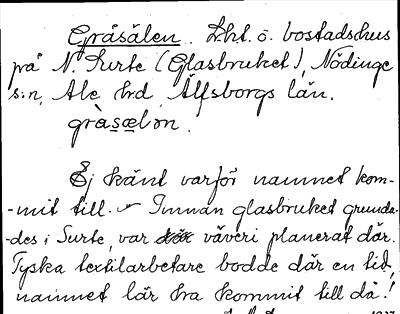 Gråsälen. Lht. o. bostadshus
på N. Surte (Glasbruket), Nödinge
s:n, Ale hrd, Älfsborgs län.
gràsælən.
Ej känt varför namnet kom-
-mit till. – Innan glasbruket grunda-
-des i Surte, var väveri planerat där.
Tyska textilarbetare bodde där en tid,
namnet lär ha kommit till då!